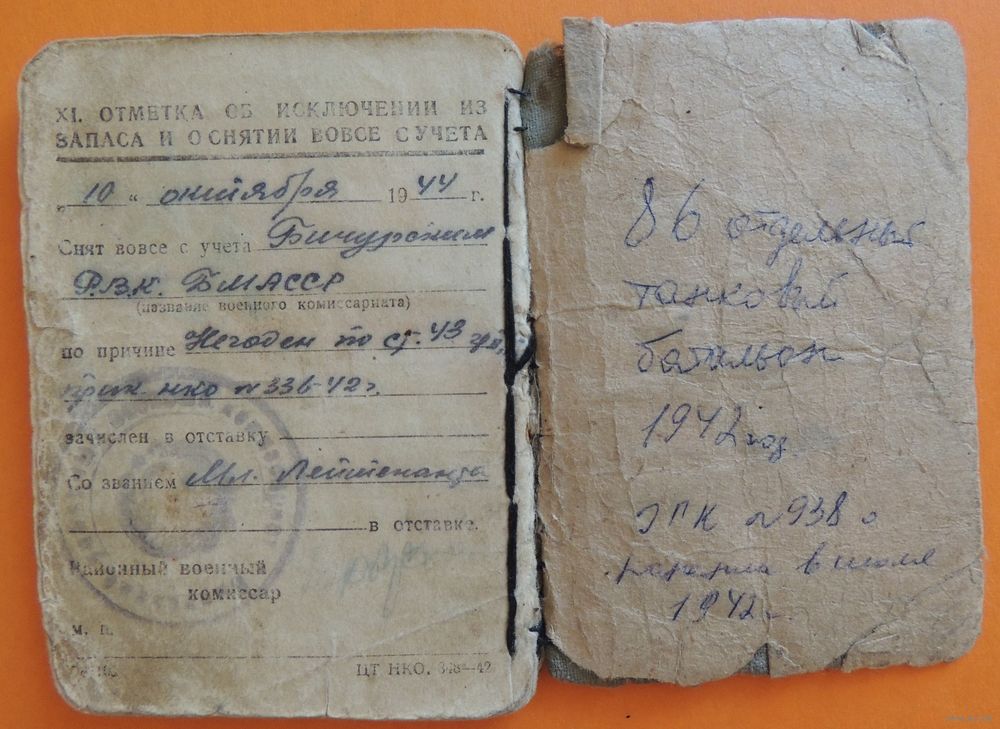 XI. ОТМЕТКА ОБ ИСКЛЮЧЕНИИ ИЗ
ЗАПАСА И О СНЯТИИ ВОВСЕ С УЧЕТА
„10“ октября 1944 г.
Снят вовсе с учета Бичурским
Р.В.К. БМАССР
(название военного комиссариата)
по причине Негоден по ст. 43
прик. НКО №336-42г.
зачислен в отставку
Со званием Мл. Лейтенанта
в отставке.
Районный военный
комиссар
М. П.
ЦТ НКО.
86 отдельный
танковый
батальон
1942 год
ЭГК №938
ранения в июле
1942г.